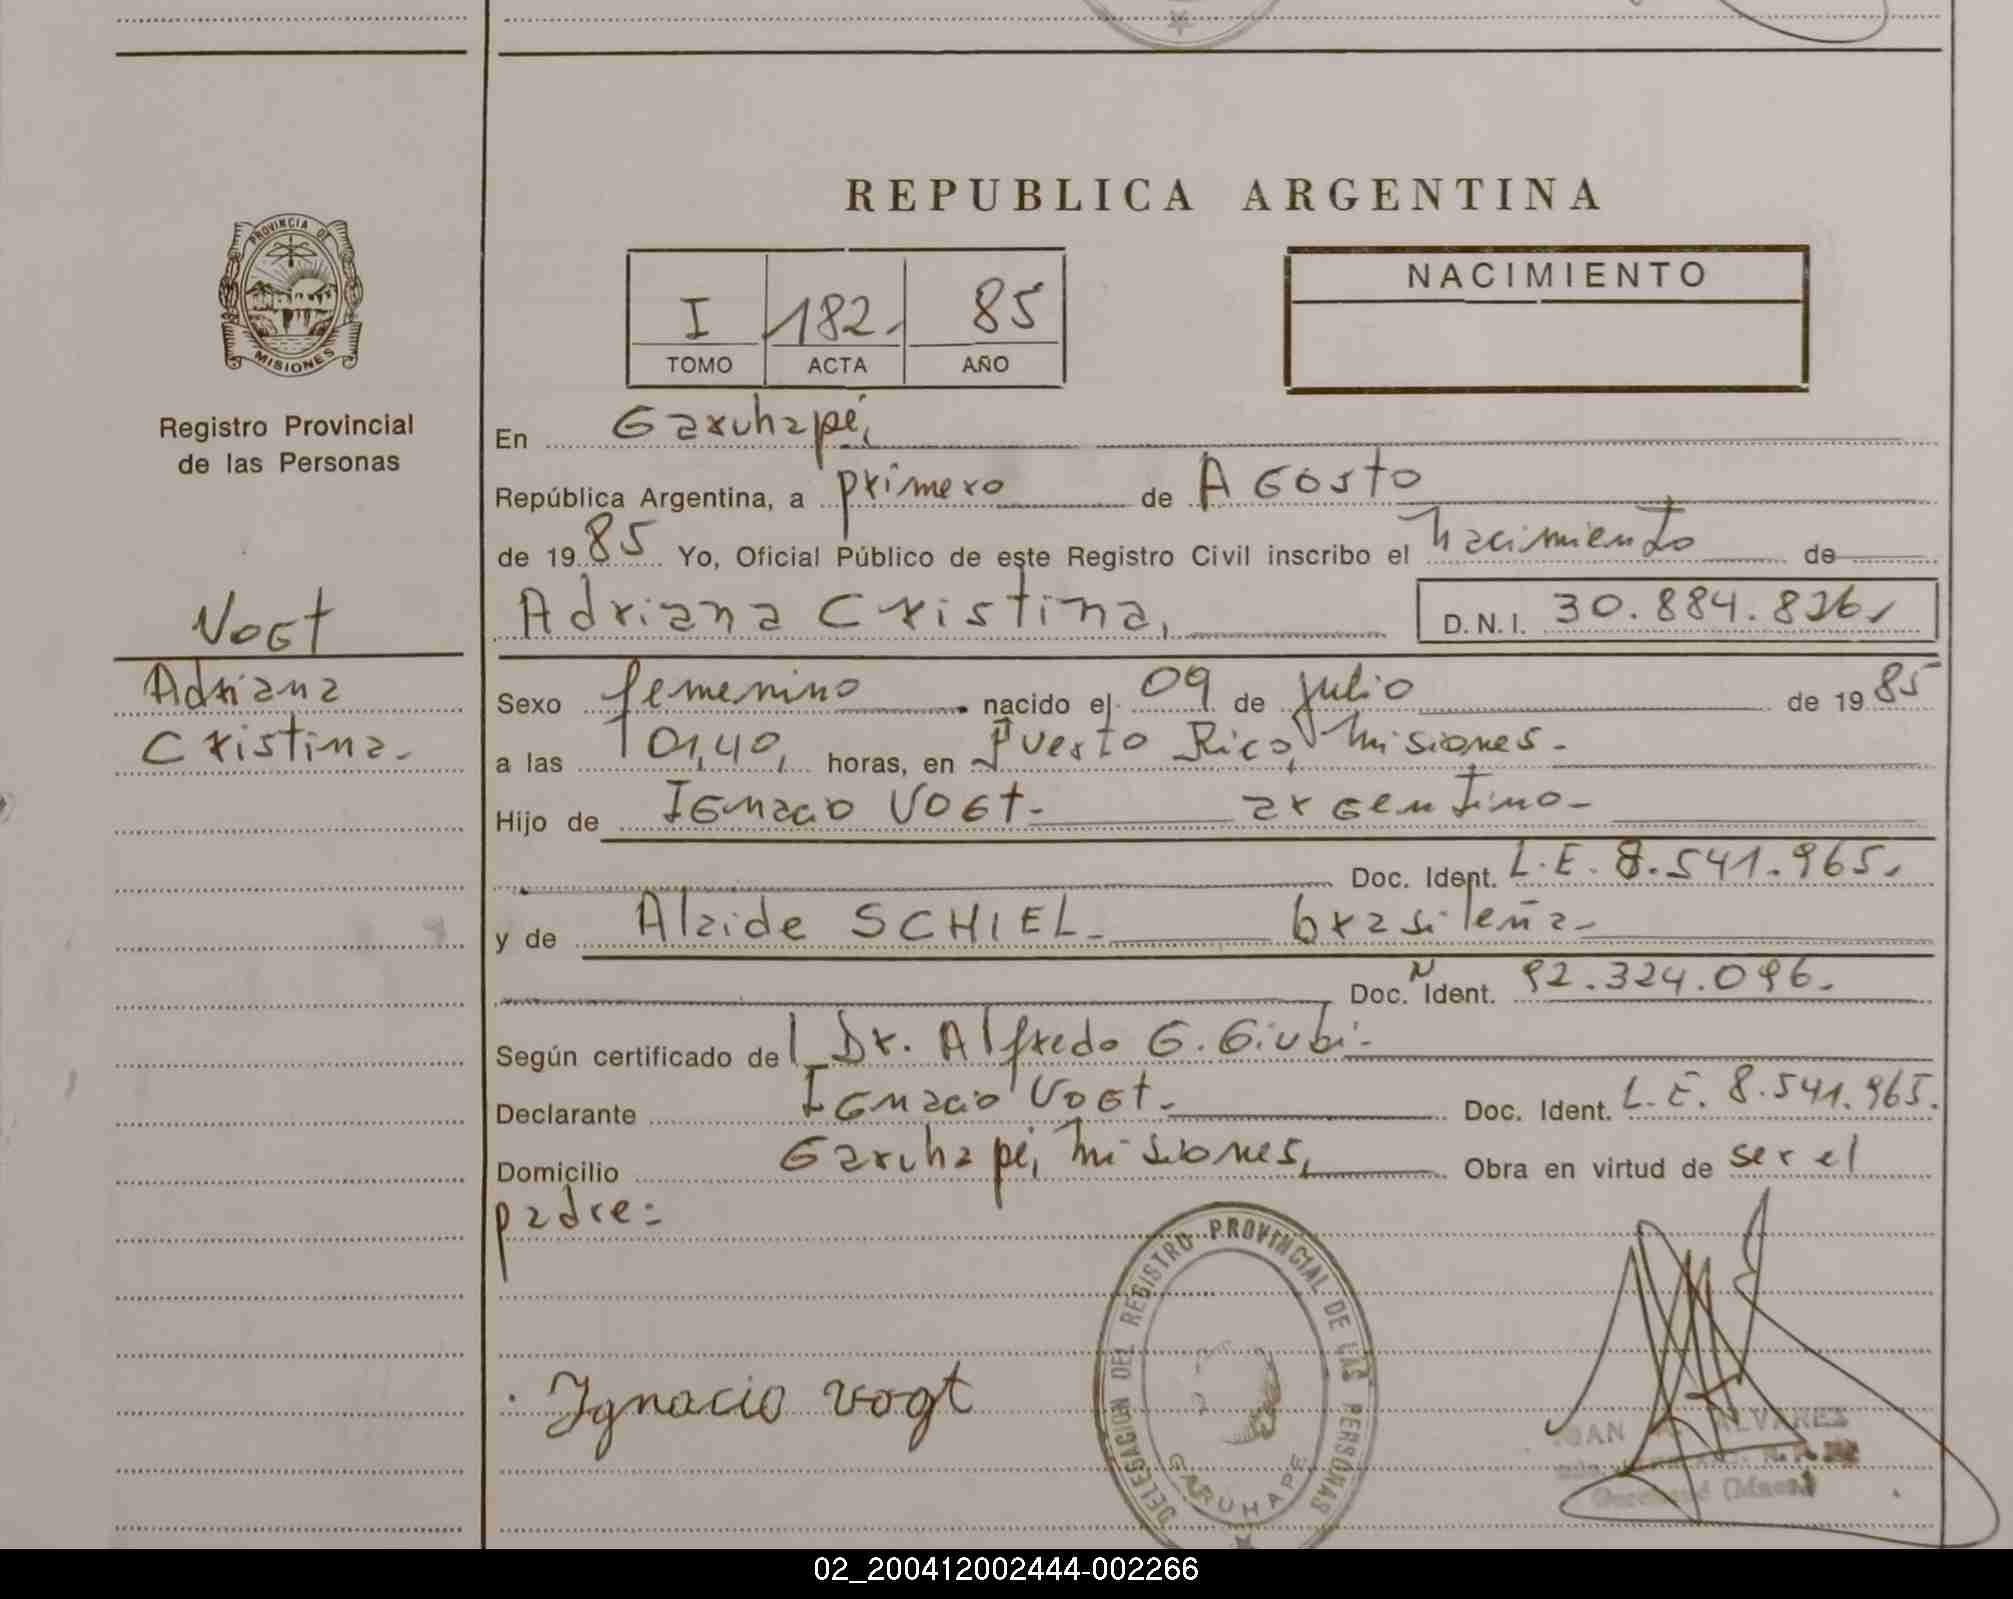 REPUBLICA ARGENTINA
PROVINCIA DE
MISIONES
Registro Provincial
de las Personas
Vogt
Adriana
Cristina.-
I 182.- 85
TOMO ACTA AÑO
NACIMIENTO
En Garuhapé,
República Argentina, a primero de Agosto
de 1985 Yo, Oficial Público de este Registro Civil inscribo el nacimiento de
Adriana Cristina, D.N.I. 30.884.826.-
Sexo femenino nacido el 09 de julio de 1985
a las 01,40, horas, en Puerto Rico, Misiones.-
Hijo de Ignacio VOGT.- argentino.-
Doc. Ident. L.E. 8.541.965.-
y de Alaide SCHIEL.- brasileña.-
Doc. Ident. 92.324.096.-
Según certificado de Dr. Alfredo G. Giubi.-
Declarante Ignacio Vogt.- Doc. Ident. L.E. 8.541.965.
Domicilio Garuhapé, Misiones, Obra en virtud de ser el
padre=
Ignacio Vogt
DELEGACION DEL REGISTRO PROVINCIAL DE LAS PERSONAS
GARUHAPE
ALVARES
02_200412002444-002266